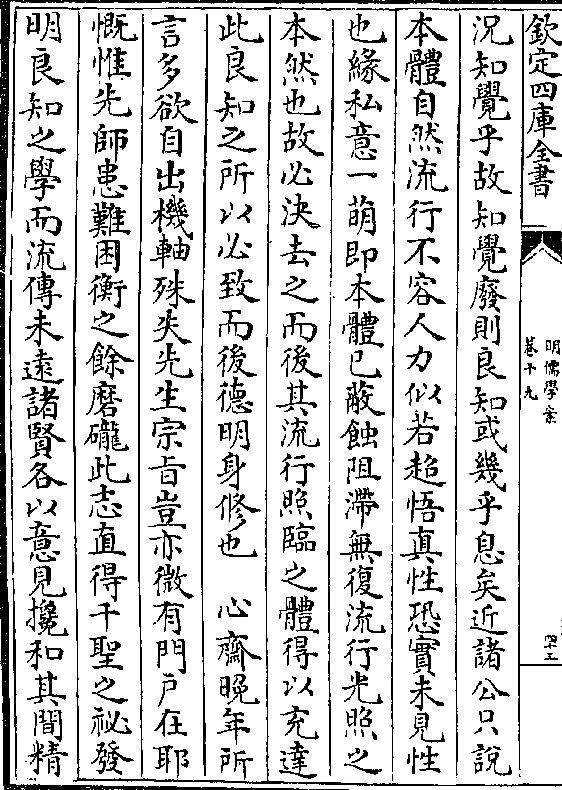 欽定四庫全書
明儒學案
卷十九
四十五
況知覺乎故知覺廢則良知或幾乎息矣近諸公只說
本體自然流行不容人力似若超悟真性恐實未見性
也緣私意一萌即本體已蔽蝕阻滯無復流行光照之
本然也故必決去之而後其流行照臨之體得以充達
此良知之所以必致而後德明身修也　心齋晚年所
言多欲自出機軸殊失先生宗旨豈亦微有門户在耶
慨惟先師患難困衡之餘磨礲此志直得千聖之祕發
明良知之學而流傳未遠諸賢各以意見攙和其間精